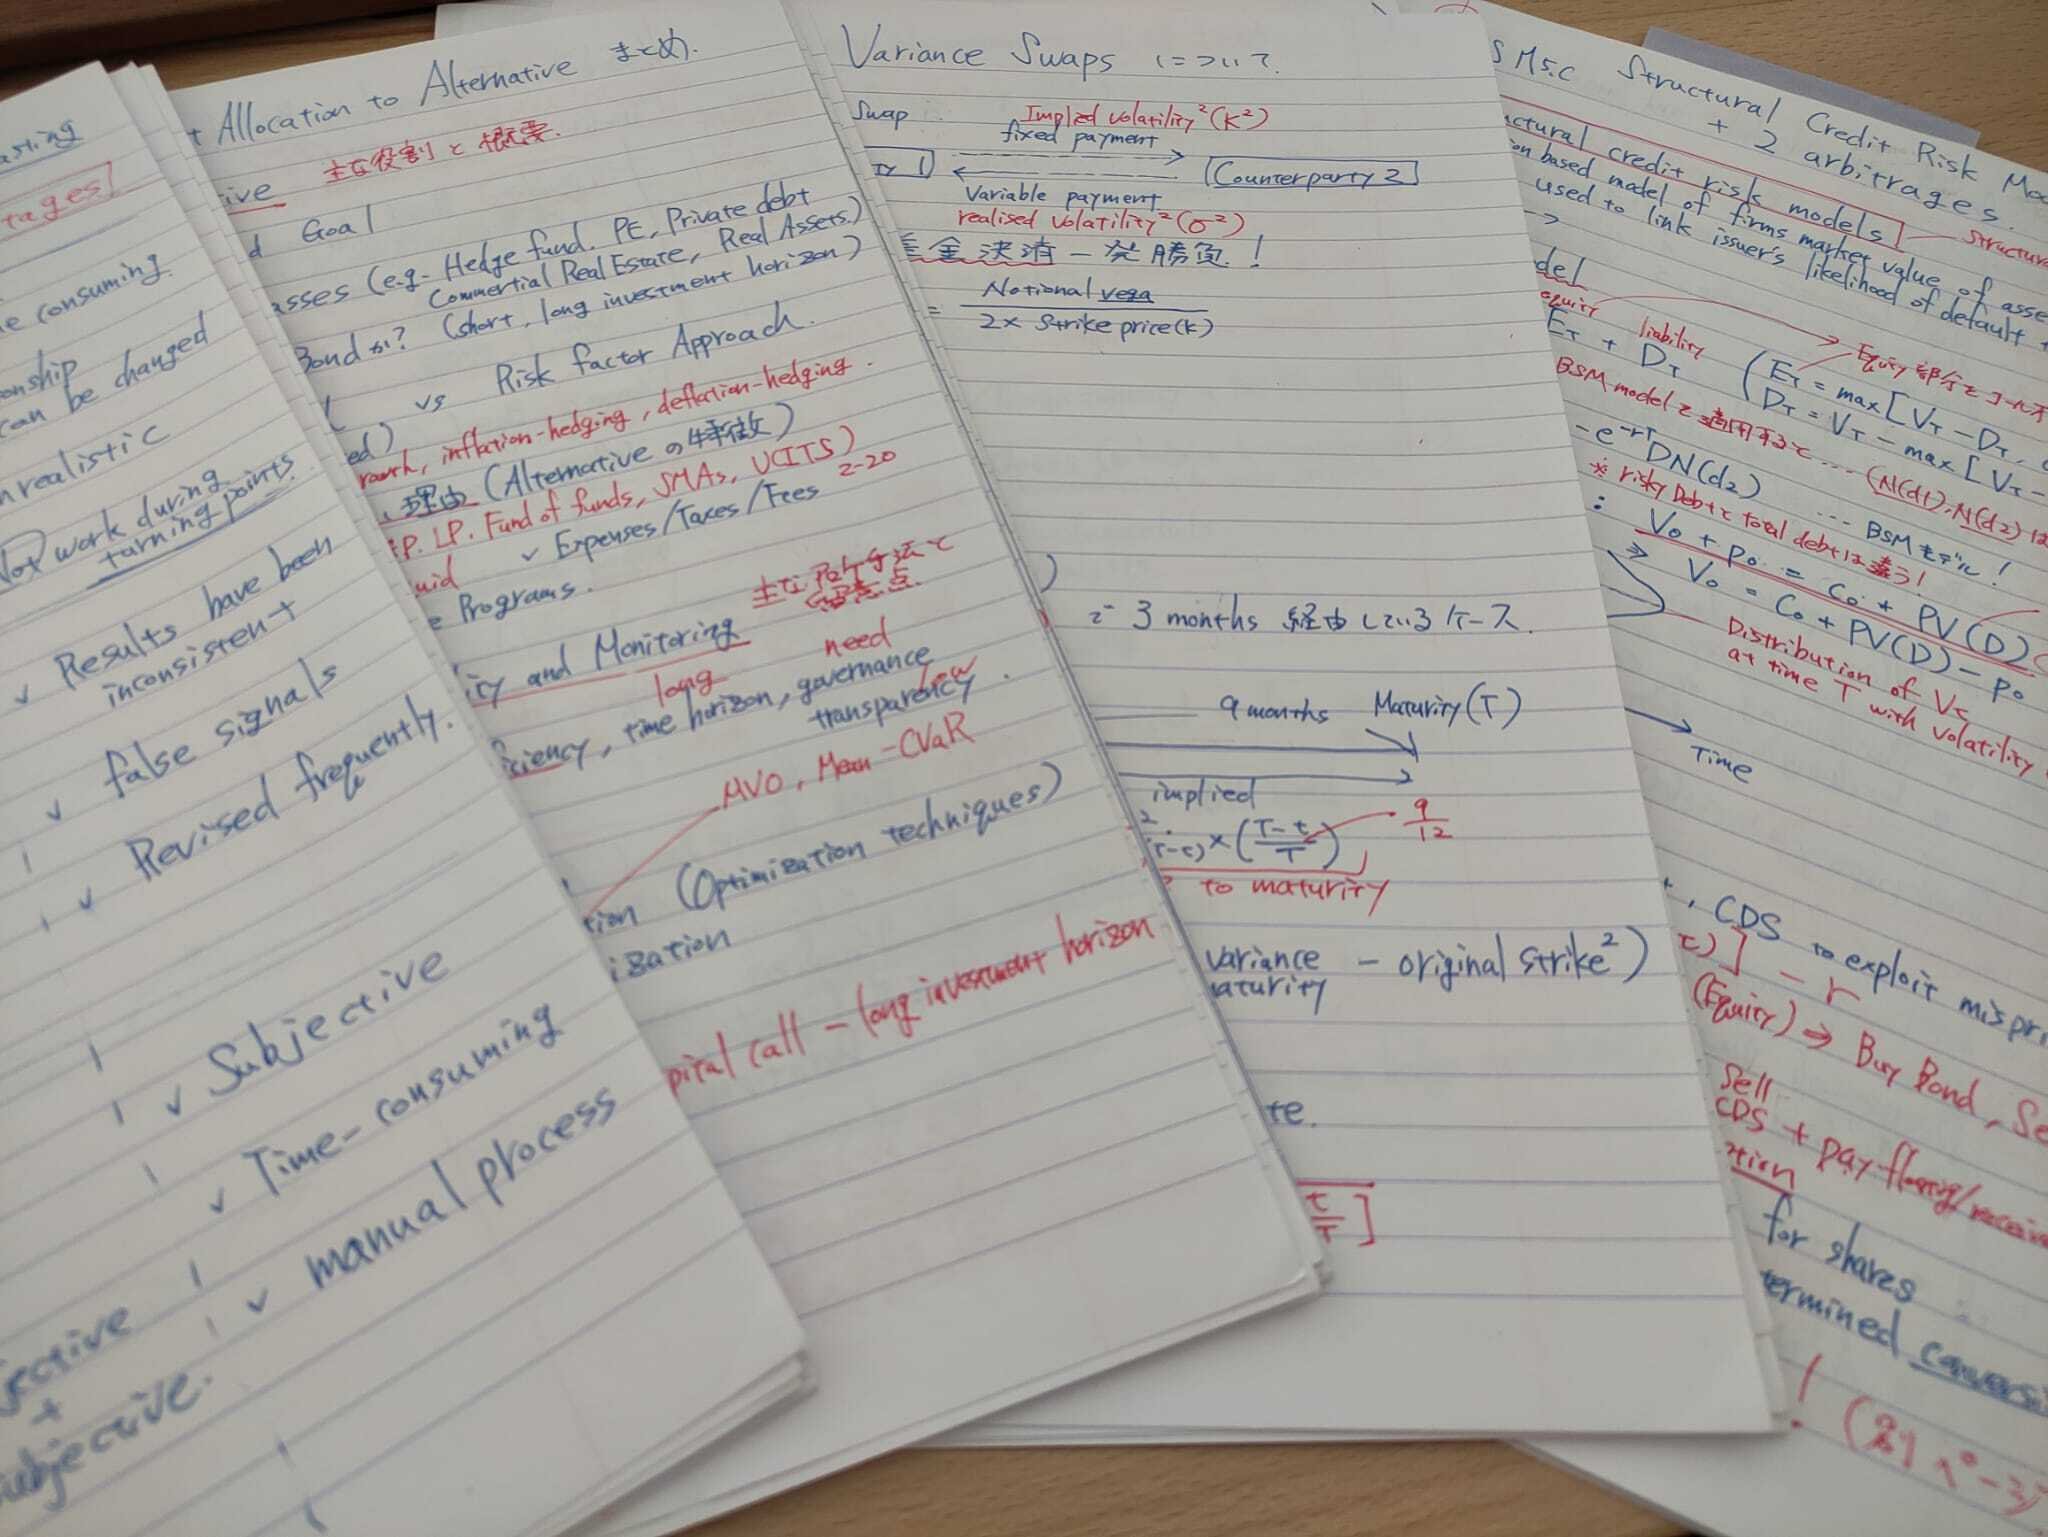 asting
tages
e consuming.
onship
can be changed
nrealistic
Not work during
turning points.
✓ Results have been
inconsistent
✓ false signals
✓ Revised frequently.
✓ Subjective
✓ Time-consuming
✓ manual process
jective
+
subjective.
t Allocation to Alternative まとめ.
ive 主な役割と概要.
d Goal
asses (e.g- Hedge fund. PE, Private debt
Commertial Real Estate, Real Assets.)
Bond か? (short, long investment horizon)
vs Risk factor Approach.
ed)
, inflation-hedging, deflation-hedging.
理由 (Alternative の特徴)
P. LP. Fund of funds, SMAs, UCITS)
uid ✓ Expenses/Taxes/Fees 2-20
e Programs.
主な
ity and Monitoring
long need
iciency, time horizon, governance
low
transparency.
MVO, Mean-CVaR
tion (Optimization techniques)
ization
pital call - long investment horizon
Variance Swaps について.
Swap Implied volatility²(K²)
fixed payment
ty 1 Counterparty 2
Variable payment
realised volatility²(σ²)
差金決済 一発勝負!
= Notional vega
2× Strike price(K)
)
で 3 months 経由しているケース.
9 months Maturity(T)
implied
2
(T-t) × (T-t / T) 9/12
to maturity
variance - original strike²)
maturity
te.
t/T ]
S M5.C Structural Credit Risk Mo
+ 2 arbitrages
uctural credit risk models structura
on based model of firms market value of asse
used to link issuer's likelihood of default +
→
del
equity liability Equity部分をコールオ
ET + DT (ET = max[VT - DT,
DT = VT - max[VT -
BSM model を適用すると... (N(d1), N(d2)は
- e^-rT DN(d2) ... BSMモデル!
※ risky Debt と total debt は違う!
: V0 + p0 = C0 + PV(D)
⇒ V0 = C0 + PV(D) - p0
Distribution of VT
at time T with volatility
Time
, CDS to exploit mispri
t)] - r
(Equity) ⇒ Buy Bond, Se
Sell
CDS + pay floating/receiv
ation
for shares
termined conversi
!